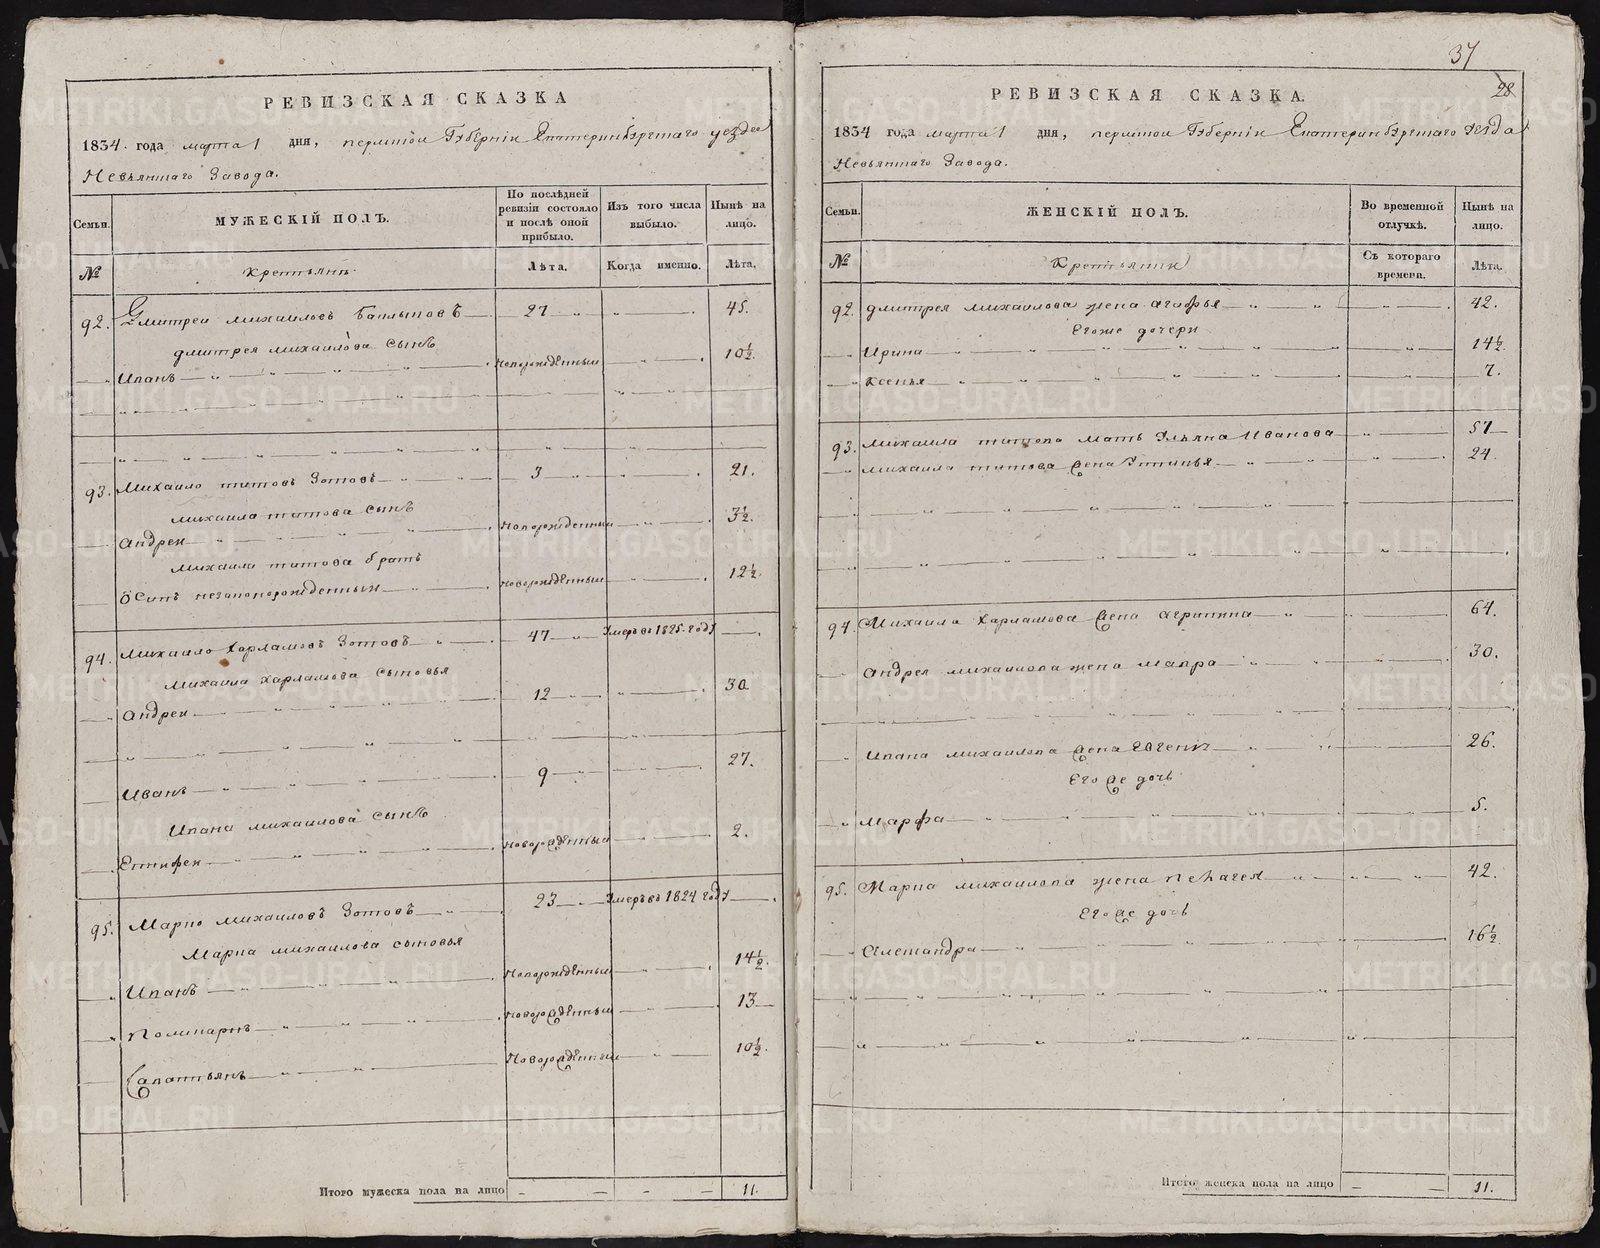 37
РЕВИЗСКАЯ СКАЗКА
1834. года марта 1 дня, пермской Губерніи Екатеринбургскаго уезда
Невьянскаго Завода.
Семьи.
МУЖЕСКІЙ ПОЛЪ.
По послѣдней ревизіи состояло и послѣ оной прибыло.
Изъ того числа выбыло.
Нынѣ на лицо.
№
Крестьянъ
Лѣта.
Когда именно.
Лѣта.
92. Дмитреи михаиловъ 27 45.
дмитрея михаилова сынъ
Иванъ новорожденныи 10½.
93. Михаило титовъ Зотовъ 3 21.
михаила титова сынъ
андреи новорожденныи 3½.
михаила титова братъ
Осипъ новорожденныи 12½.
94. михаило харламовъ Зотовъ 47 Умеръ в 1825 году
михаила харламова сыновья
андреи 12 30
Иванъ 9 27.
Ивана михаилова сынъ
Епифеи новорожденныи 2.
95. Марко михаиловъ Зотовъ 23 Умеръ въ 1824 году
Марка михаилова сыновья
Иванъ новорожденныи 14½.
новорожденныи 13
Савастьянъ новорожденныи 10½.
Итого мужеска пола на лицо 11.
28
РЕВИЗСКАЯ СКАЗКА.
1834 года марта 1 дня, пермской Губерніи Екатеринбургскаго уезда
Невьянскаго Завода.
Семьи.
ЖЕНСКІЙ ПОЛЪ.
Во временной отлучкѣ.
Нынѣ на лицо.
№
Съ котораго времена.
Лѣта.
92. дмитрея михаилова жена агафья 42.
Егоже дочери
Ирина 14½
Ксенья 7.
93. михаила титова мать Ульяна Иванова 57
михаила титова жена Устинья 24.
94. Михаила харламова жена агрипина 64.
андрея михаилова жена мавра 30.
Ивана михаилова жена 26.
Его же дочь
Марфа 5.
95. Марка михаилова жена пелагея 42.
Его же дочь
Александра 16½
Итого женска пола на лицо 11.
METRIKI.GASO-URAL.RU